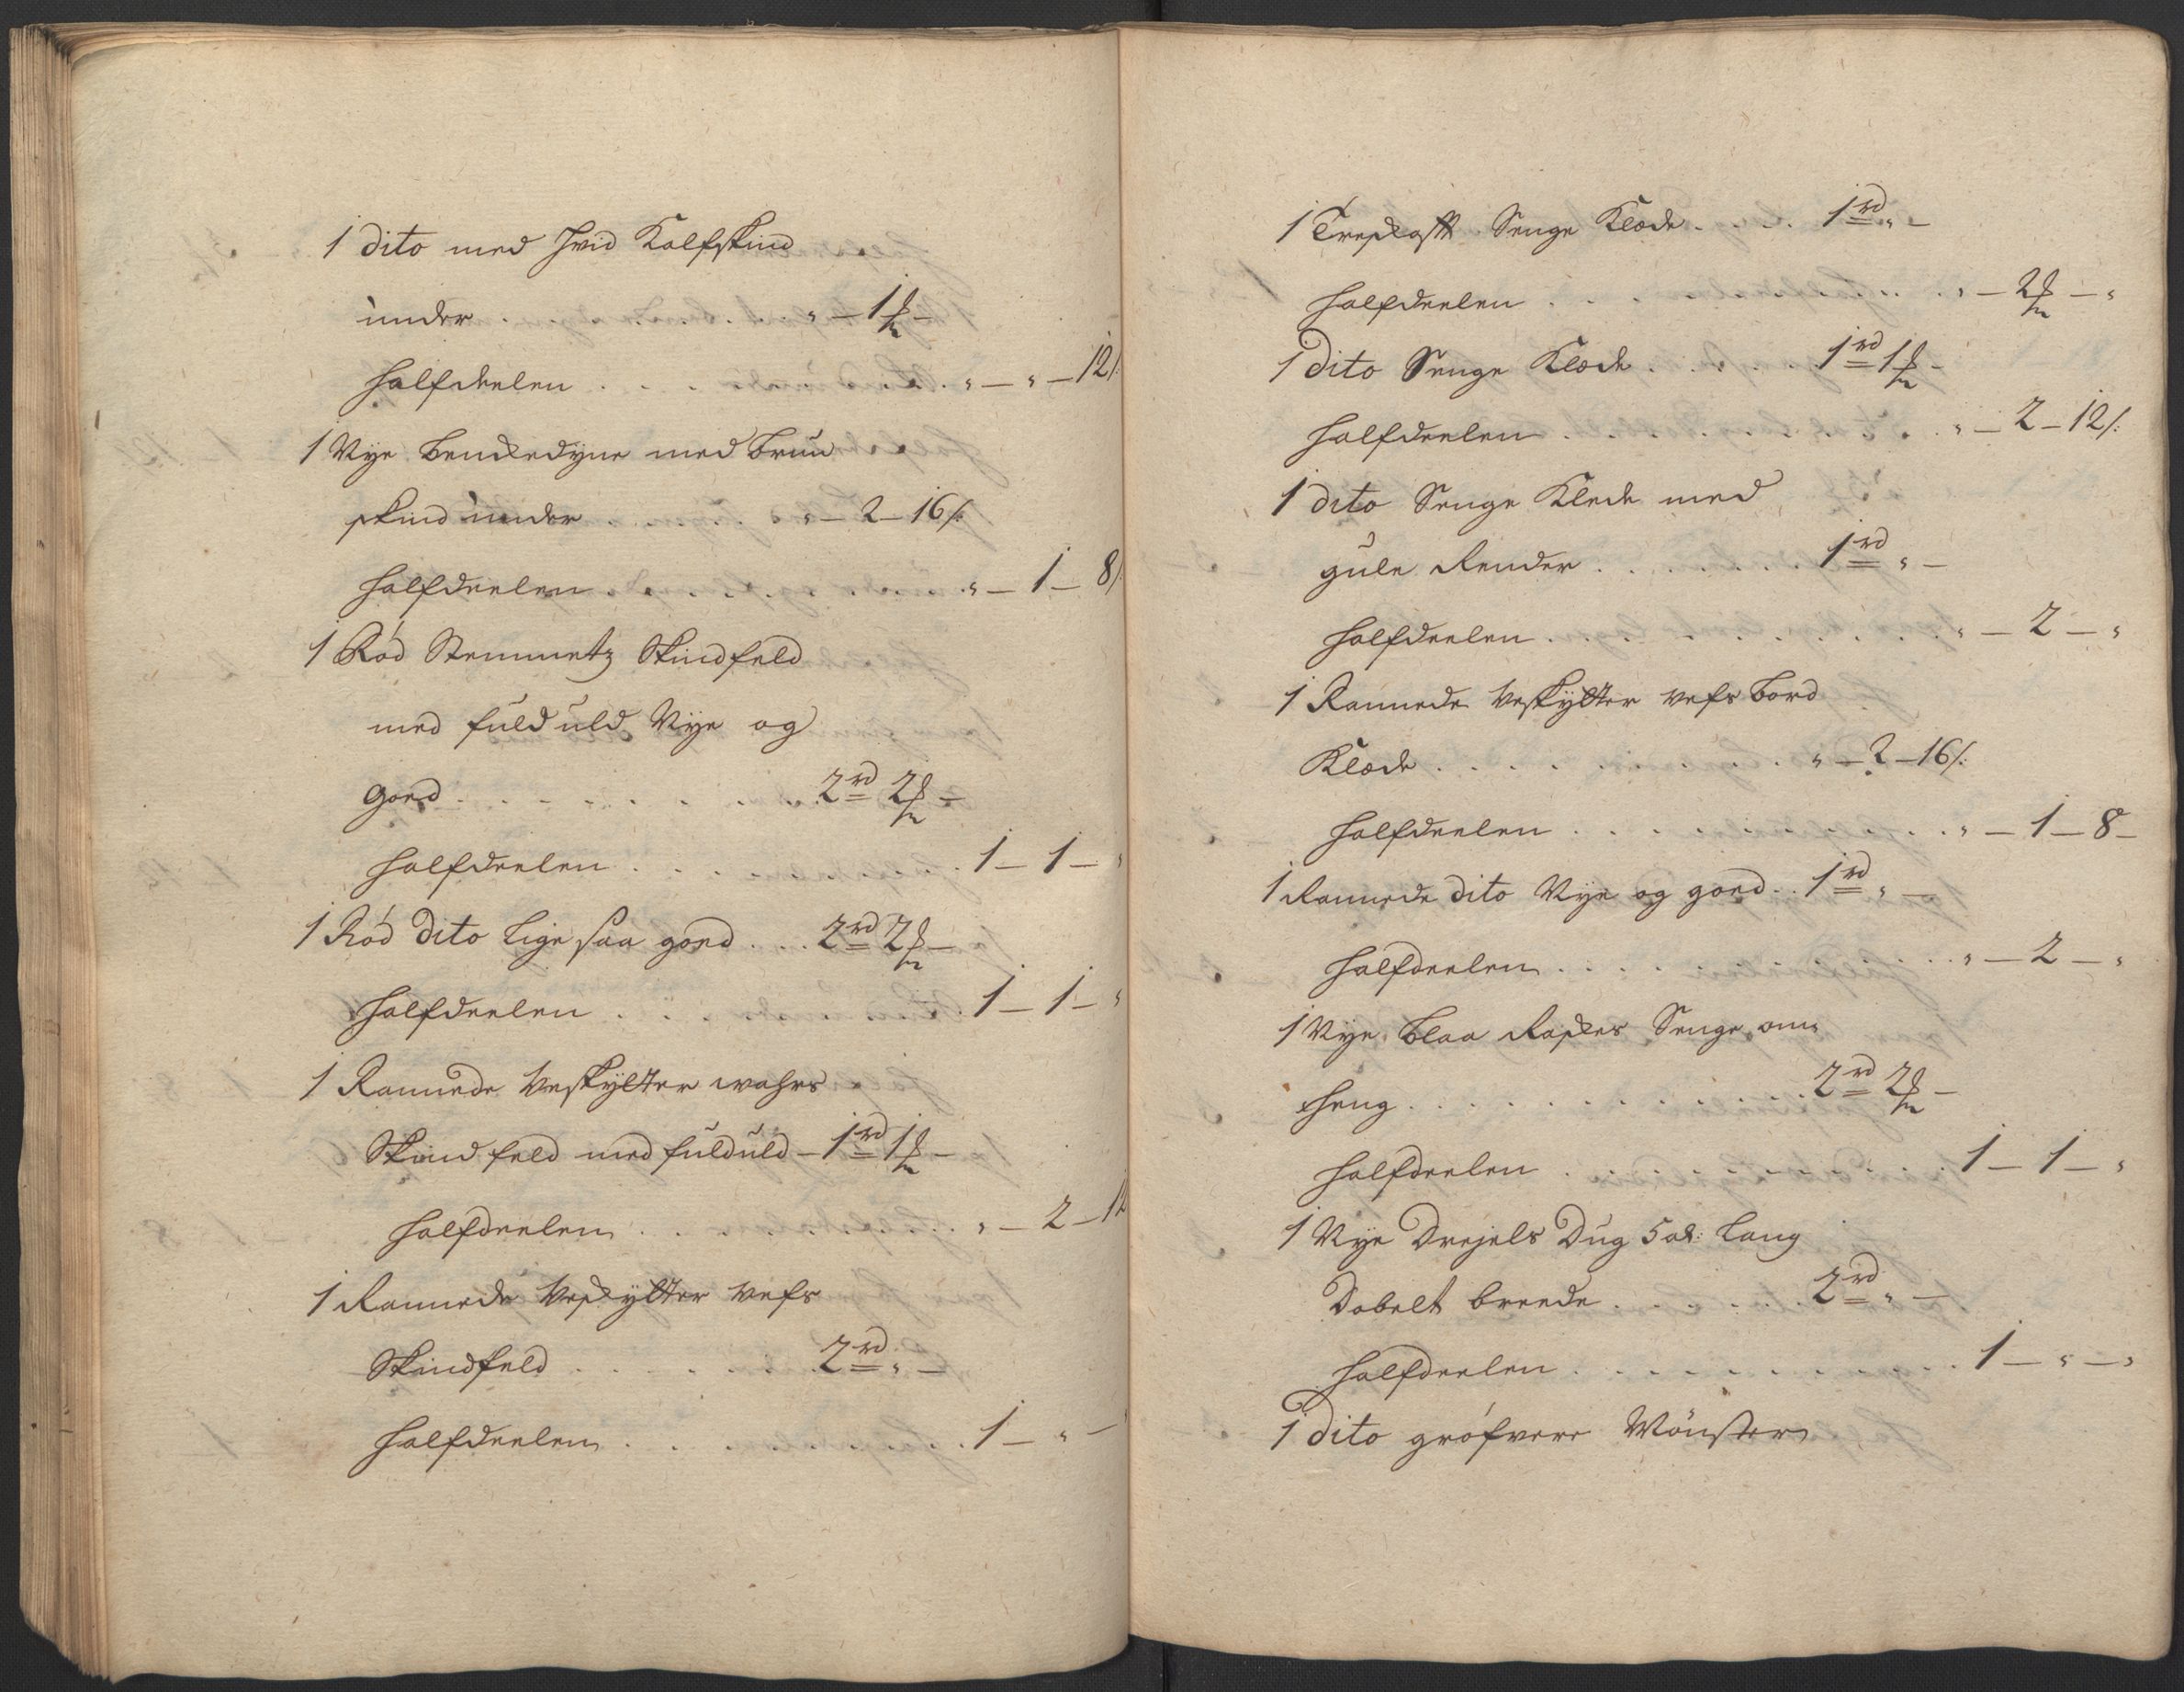 1 dito med Hvid Kalfskind
under . . . . . . " – 1 ℔ –
halfdeelen . . . . . . . " – " – 12 ſ:
1 Nÿe Benckedÿne med Brun
skind under " – 2 – 16 ſ:
halfdeelen . . . . . . " – 1 – 8 ſ
1 Rød Stemmetz Skindfeld
med fuld uld Nÿe og
goed . . . . . . . 2 rd 2 ℔ –
halfdeelen . . . . . . 1 – 1 – "
1 Rød dito Lige saa goed . . . 2 rd 2 ℔ –
halfdeelen . . . . . . 1 – 1 – "
1 Rannede Veskÿltter wahrs
Skind feld med fulduld – 1 rd 1 ℔ –
halfdeelen . . . . . . " – 2 – 12
1 Rannede Veskÿltter vefs
Skindfeld . . . . . . 2 rd " –
halfdeelen . . . . . . 1 – " –
1 Senge Klæde . . . . 1 rd " –
halfdeelen . . . . . . . " – 2 ℔ – "
1 dito Senge Klæde . . . . 1 rd 1 ℔ –
halfdeelen . . . . . . . " – 2 – 12 ſ:
1 dito Senge Klede med
gule Render . . . . . . 1 rd " –
halfdeelen . . . . . . . " – 2 – "
1 Rannede Veskÿltter vefs Bord
Klæde . . . . . . . " – 2 – 16 ſ:
halfdeelen . . . . . . . " – 1 – 8 –
1 Rannede dito Nÿe og goed . . 1 rd " –
halfdeelen . . . . . . . " – 2 – "
1 Nÿe Blaa Raskes Senge om
heng . . . . . . . 2 rd 2 ℔ –
halfdeelen . . . . . . . 1 – 1 – "
1 Nÿe Drejels Dug 5 al: Lang
Dobelt breede . . . . . . 2 rd " –
halfdeelen . . . . . . . 1 – " – "
1 dito gröfvere Mönster